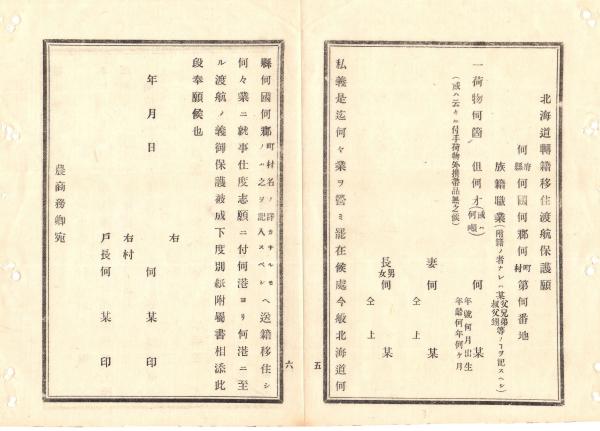 北海道轉籍移住渡航保護願
何府縣何國何郡何町村第何番地
族籍職業(附籍ノ者ナレハ某父兄弟叔父甥等ノヿヲ記スヘシ)
何某
年號何月出生
年齡何年何ヶ月
一荷物何箇 但何才(或ハ何噸)
(或ハ云々ノ付手荷物外携帶品無之候)
妻何某
仝上
長男女何某
仝上
私義是迄何々業ヲ營ミ罷在候處今般北海道何
五
六
縣何國何郡(町村名ノ詳カナルモノハ之ヲ記入スベシ)ヘ送籍移住シ
何々業ニ就事仕度志願ニ付何港ヨリ何港ニ至
ル渡航ノ義御保護被成下度別紙附屬書相添此
段奉願候也
年月日
右 何某印
右村
戸長何某印
農商務卿宛